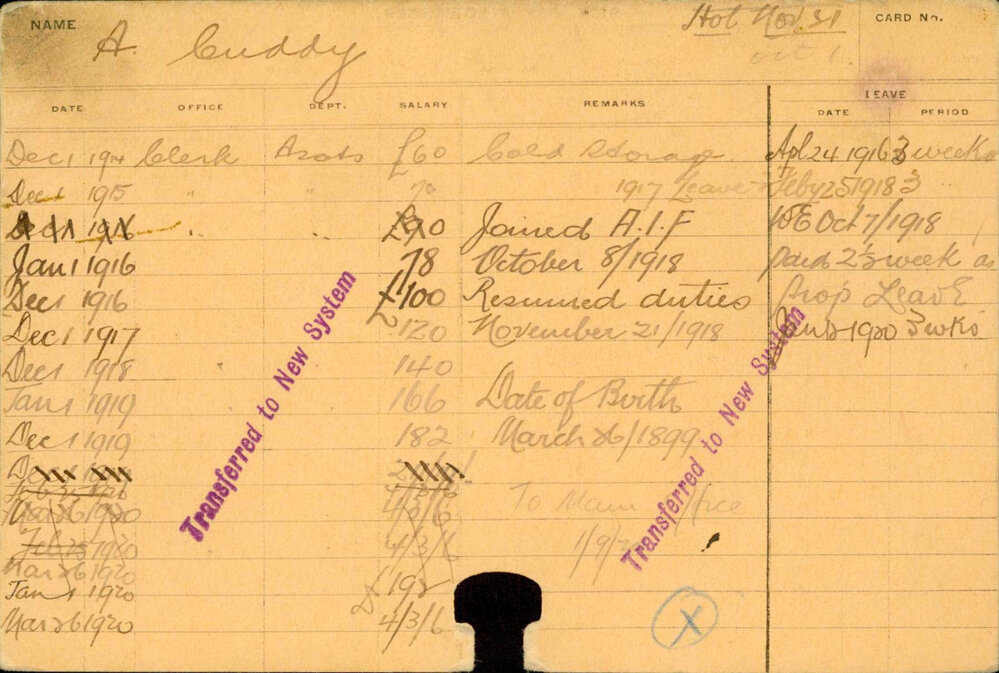 NAME A. Cuddy Hol Nov. 31 CARD No.
Oct 1
DATE OFFICE DEPT. SALARY REMARKS LEAVE
DATE PERIOD
Dec 1 1914 Clerk £60 Cold Storage Apl 24 1916 3 weeks
Dec 1 1915 " " 70 1917 Leave Feby 25 1918 3
Dec 1 1916 " " £90 Joined A.I.F WE Oct 7/1918
Jan 1 1916 78 October 8/1918 paid 2½ week as
Dec 1 1916 £100 Resumed duties Prop Leave
Dec 1 1917 £120 November 21/1918 1920 3 wks
Dec 1 1918 140
Jan 1 1919 166 Date of Birth
Dec 1 1919 182 March 26/1899
Feb 25 1920 4/3/6 To Main Office
Mar 26 1920 4/3/6
Feb 25 1920 4/3/6 1/9/
Mar 26 1920
Jan 1 1920 192
Mar 26 1920 4/3/6
X
Transferred to New System
Transferred to New System